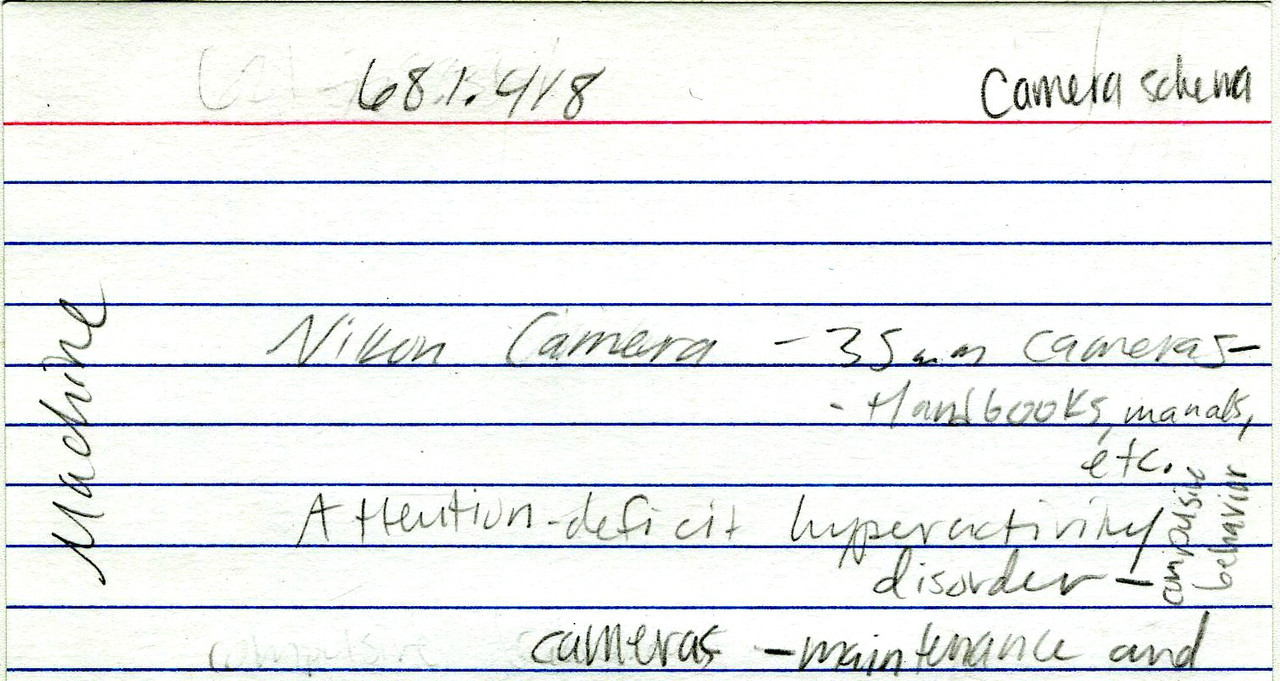 681.418
Camera schema
Machine
Nikon Camera - 35mm cameras-
- Handbooks, manals,
etc.
Attention-deficit hyperactivity
disorder -
compulsive
behavior
compulsive
cameras - maintenance and